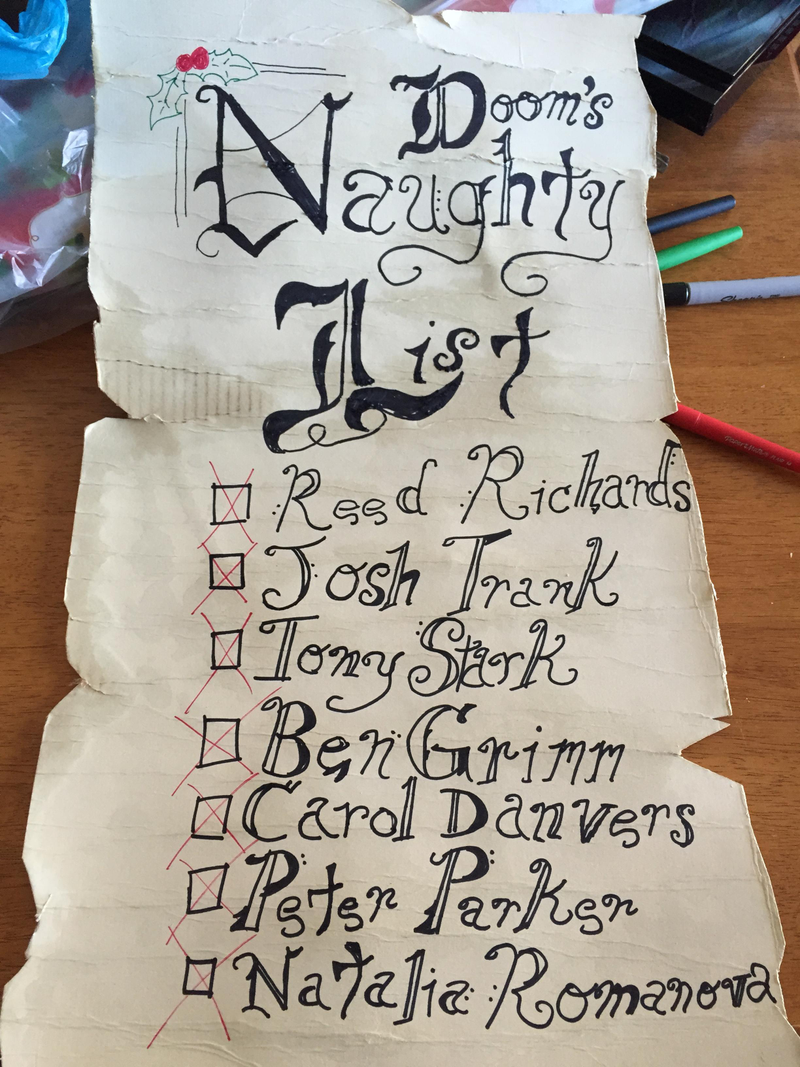 Doom's
Naughty
List
Reed Richards
Josh Trank
Tony Stark
Ben Grimm
Carol Danvers
Peter Parker
Natalia Romanova
Sharpie